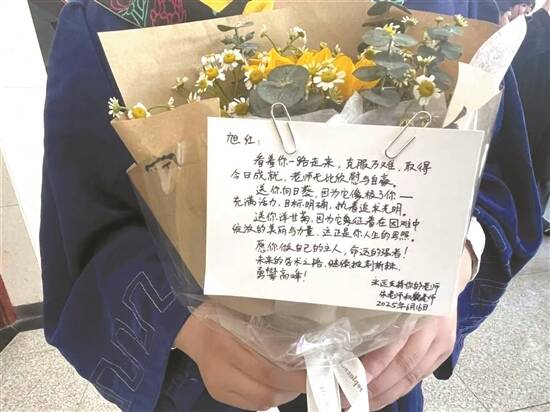 旭红：
看着你一路走来，克服万难，取得
今日成就，老师无比欣慰与自豪。
送你向日葵，因为它像极了你——
充满活力，目标明确，执着追求光明。
送你洋甘菊，因为它象征着在困难中
绽放的美丽与力量，这正是你人生的写照。
愿你做自己的主人，命运的强者！
未来的学术之路，继续披荆斩棘，
勇攀高峰！
永远支持你的老师
2025年6月16日